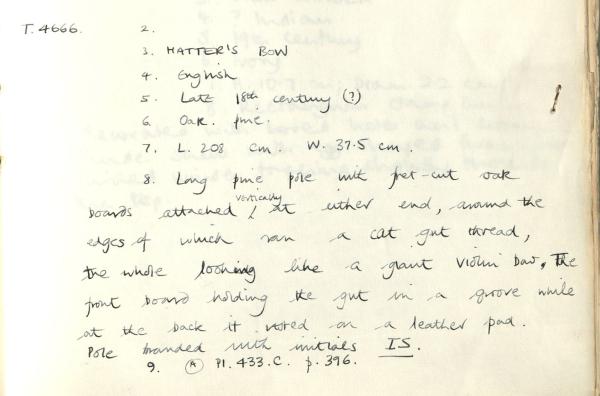 T.4666. 2.
3. HATTER'S BOW
4. English
5. Late 18th century (?)
6. Oak. pine.
7. L. 208 cm. W. 37.5 cm.
8. Long pine pole with fret-cut oak
boards attached vertically at either end, around the
edges of which ran a cat gut thread,
the whole looking like a giant violin bow, The
front board holding the gut in a groove while
at the back it rested on a leather pad.
Pole branded with initials IS.
9. (A) Pl. 433.C. p. 396.